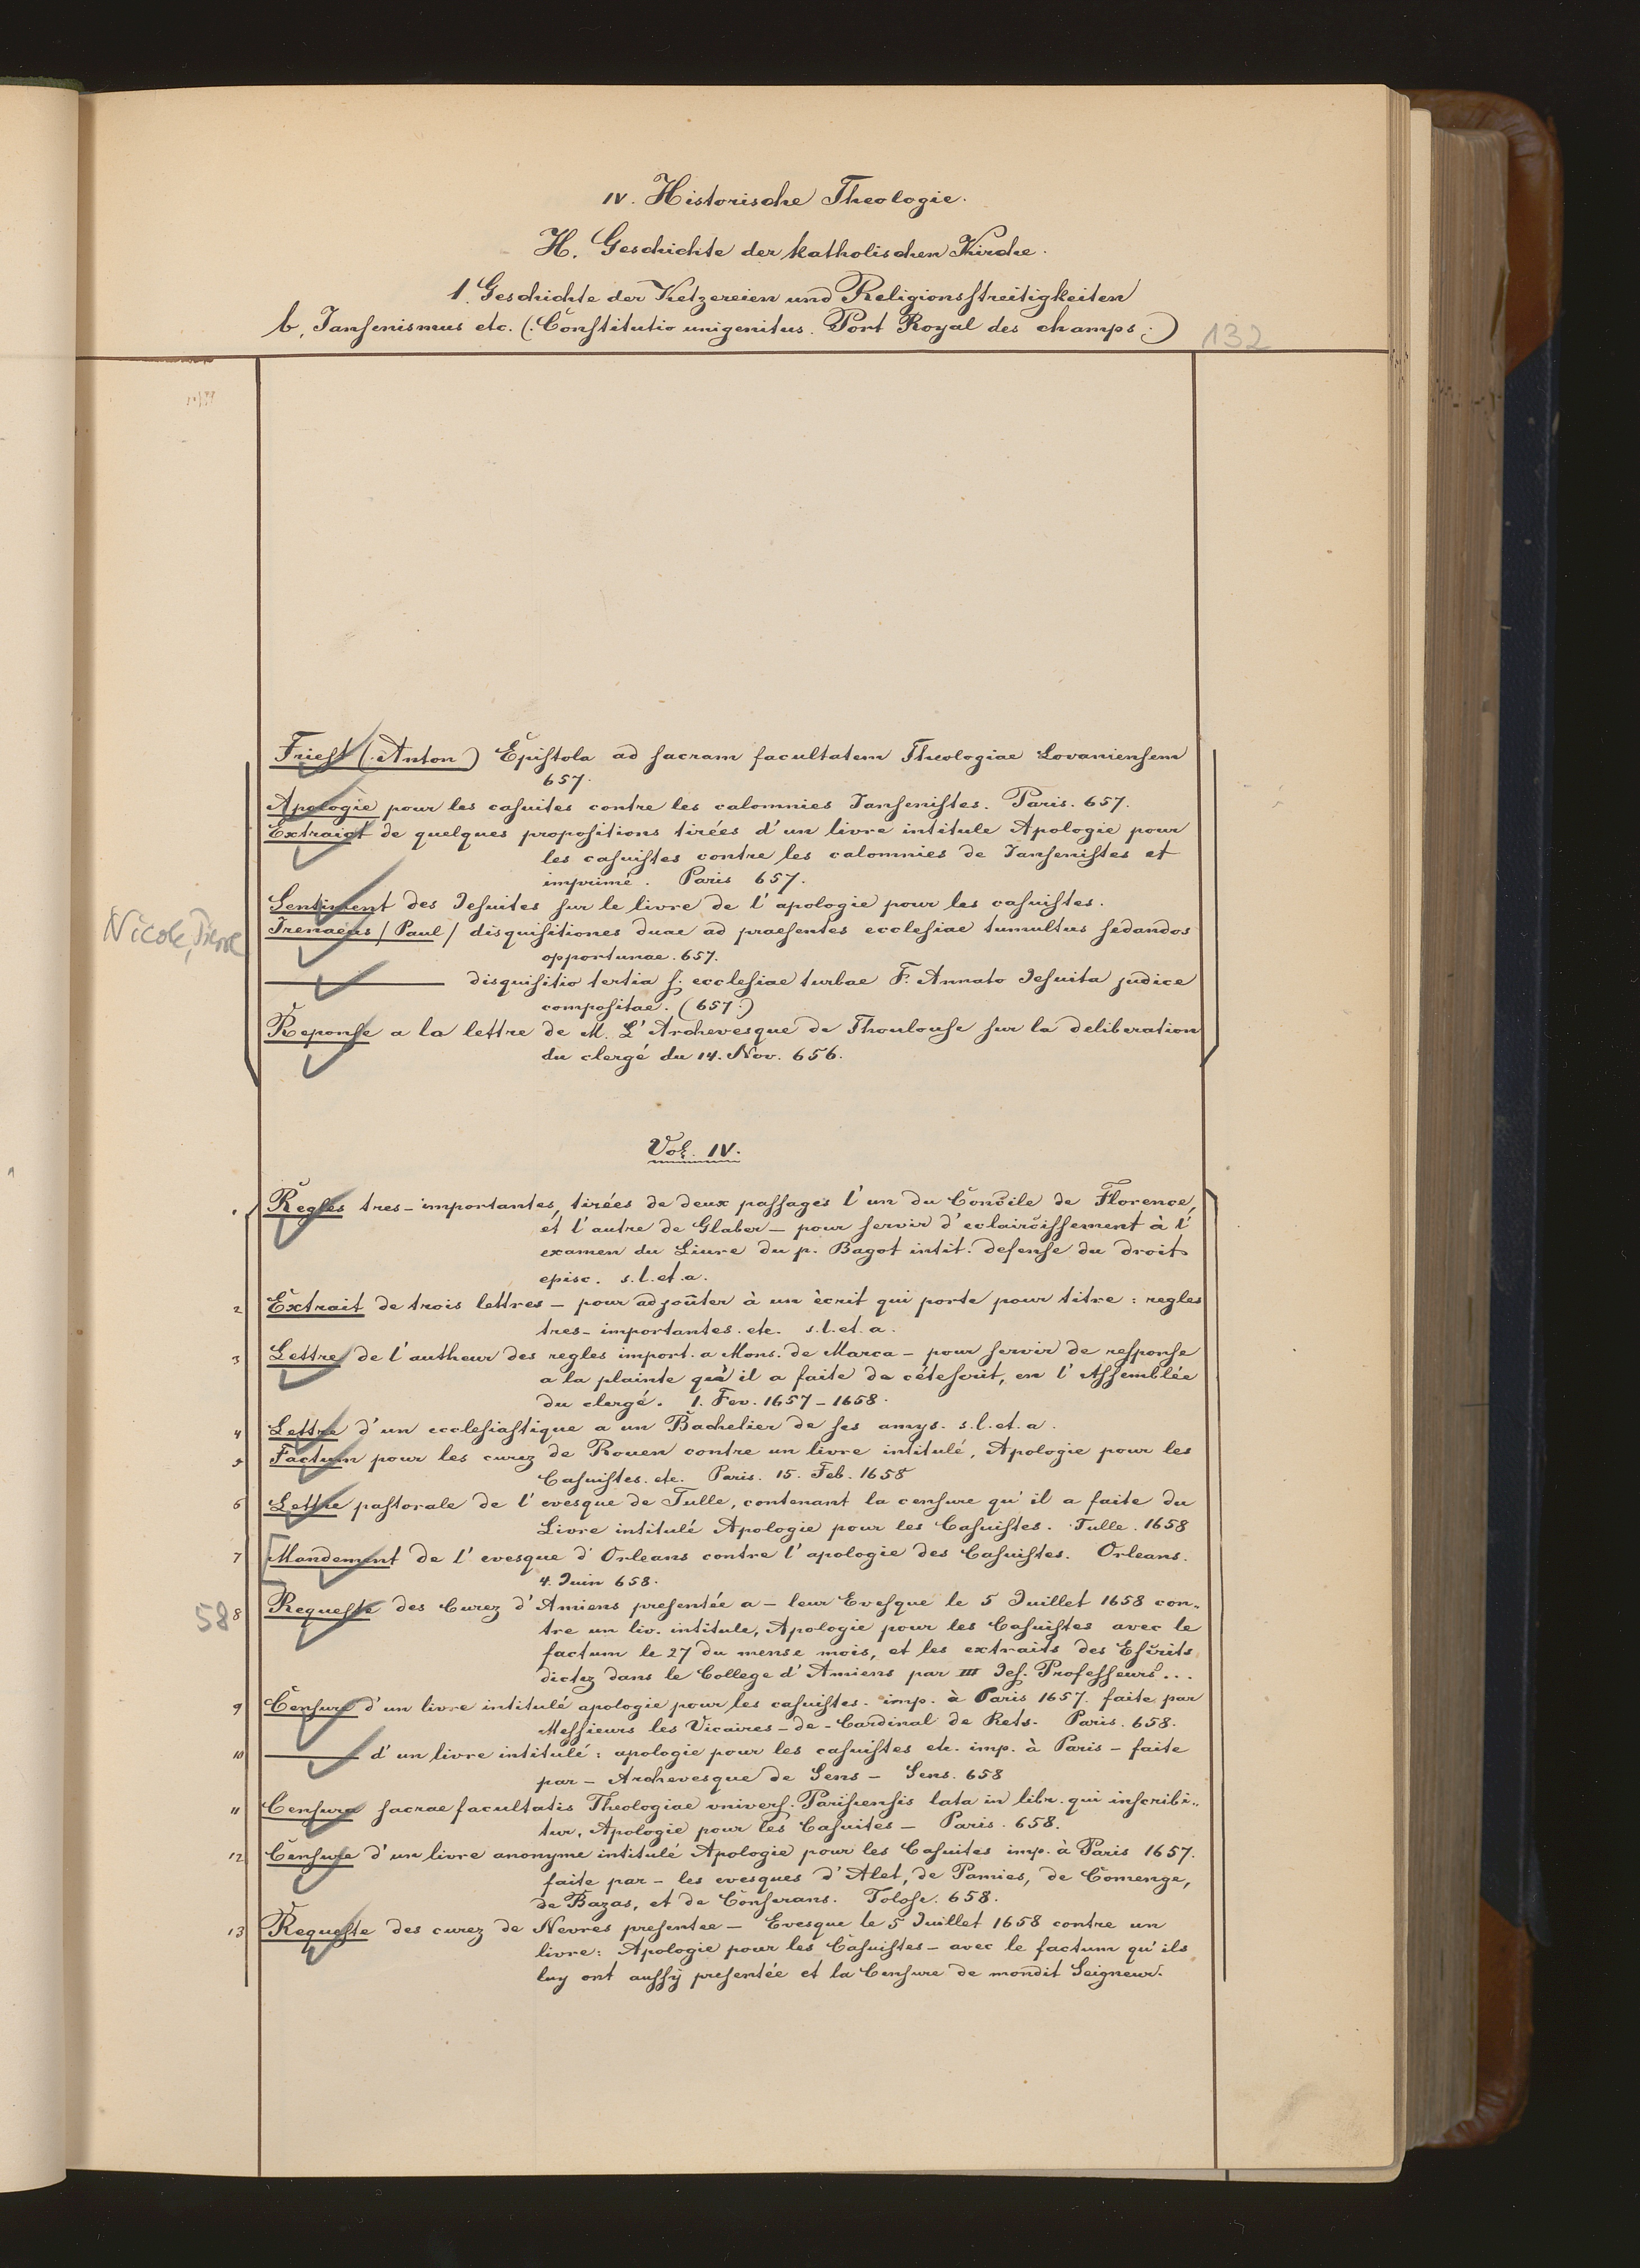 IV. Historische Theologie.
H. Geschichte der katholischen Kirche.
1. Geschichte der Ketzereien und Religionsstreitigkeiten
b. Jansenismus etc. (: Constitutio unigenitus. Port Royal des champs :)
132
Triest (: Anton) Epistola ad sacram facultatem Theologiae Lovaniensem
657.
Apologie pour les casuites contre les calomnies Jansenistes. Paris. 657.
Extraict de quelques propositions tirées d'un livre intitule Apologie pour
les casuistes contre les calomnies de Jansenistes et
imprimé. Paris 657.
Sentiment des Jesuites sur le livre de l'apologie pour les casuistes.
Nicole, Pierre
Irenaeus / Paul / disquisitiones duae ad praesentes ecclesiae tumultus sedandos
opportunae. 657.
——— disquisitio tertia s. ecclesiae turbae F. Annato Jesuita judice
compositae. (657:)
Reponse a la lettre de M. L'Archevesque de Thoulouse sur la deliberation
du clergé du 14. Nov. 656.
Vol. IV.
1 Regles tres-importantes, tirées de deux passages l'un du Concile de Florence,
et l'autre de Glaber – pour servir d'eclaircissement à l'
examen du Liure du p. Bagot intit. defense du droit
episc. s.l.et.a.
2 Extrait de trois lettres – pour adjoûter à un ècrit qui porte pour titre: regles
tres-importantes. etc. s.l.et.a.
3 Lettre de l'autheur des regles import. a Mons. de Marca – pour servir de response
a la plainte qu'il a faite de en l'Assemblée
du clergé. 1. Fev. 1657–1658.
4 Lettre d'un ecclesiastique a un Bachelier de ses amys. s.l.et.a.
5 Factum pour les curez de Rouen contre un livre intitulé, Apologie pour les
Casuistes. etc. Paris. 15. Feb. 1658
6 Lettre pastorale de l'evesque de Tulle, contenant la censure qu'il a faite du
Livre intitulé Apologie pour les Casuistes. Tulle. 1658
7 Mandement de l'evesque d'Orleans contre l'apologie des Casuistes. Orleans.
4. Juin 658.
58 8 Requeste des Curez d'Amiens presentée a – leur Evesque le 5 Juillet 1658 con-
tre un liv. intitule, Apologie pour les Casuistes avec le
factum le 27 du mense mois, et les extraits des Escrits
dictez dans le College d'Amiens par III Jes. Professeurs...
9 Censure d'un livre intitulé apologie pour les casuistes. imp. à Paris 1657. faite par
Messieurs les Vicaires – de – Cardinal de Rets. Paris. 658.
10 ——— d'un livre intitulé: apologie pour les casuistes etc. imp. à Paris – faite
par – Archevesque de Sens – Sens. 658
11 Censura sacrae facultatis Theologiae univers. Parisiensis lata in libr. qui inscribi-
tur, Apologie pour les Casuites – Paris. 658.
12 Censure d'un livre anonyme intitulé Apologie pour les Casuites imp. à Paris 1657.
faite par – les evesques d'Alet, de Pamies, de Comenge,
de Bazas, et de Conserans. Tolose. 658.
13 Requeste des curez de Nevres presentee – Evesque le 5 Juillet 1658 contre un
livre: Apologie pour les Casuistes – avec le factum qu'ils
luy ont aussÿ presentée et la Censure de mondit Seigneur.